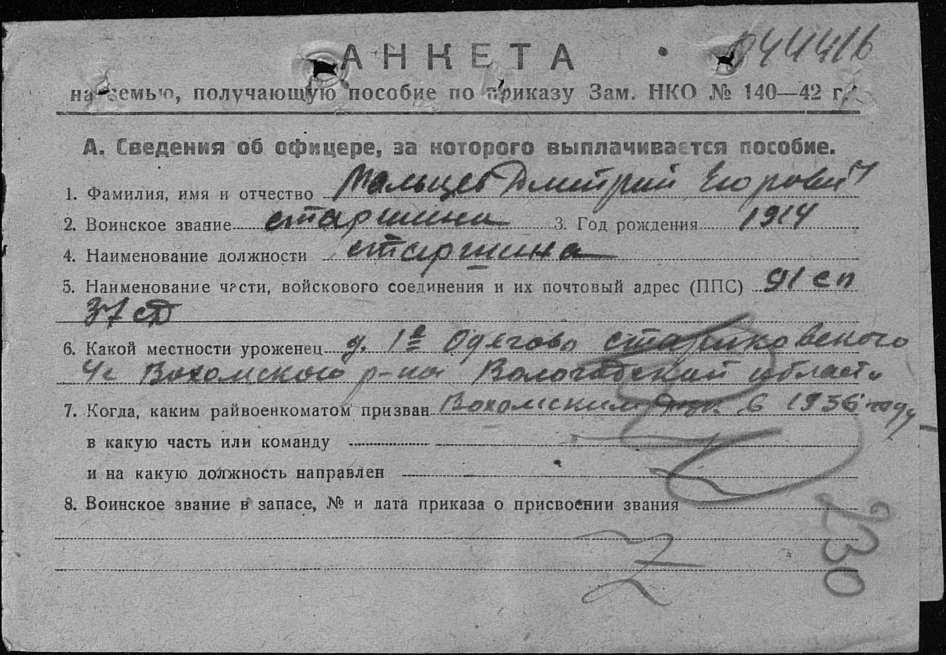 АНКЕТА
044416
на семью, получающую пособие по приказу Зам. НКО № 140—42 г.
А. Сведения об офицере, за которого выплачивается пособие.
1. Фамилия, имя и отчество Мальцев Дмитрий Егорович
2. Воинское звание старшина 3. Год рождения 1914
4. Наименование должности старшина
5. Наименование части, войскового соединения и их почтовый адрес (ППС) 91 сп
37 сд
6. Какой местности уроженец д. 1е Одегово Стариковского
Вохомского р-на Вологодской области
7. Когда, каким райвоенкоматом призван Вохомским в 1936 году
в какую часть или команду
и на какую должность направлен
8. Воинское звание в запасе, № и дата приказа о присвоении звания
230